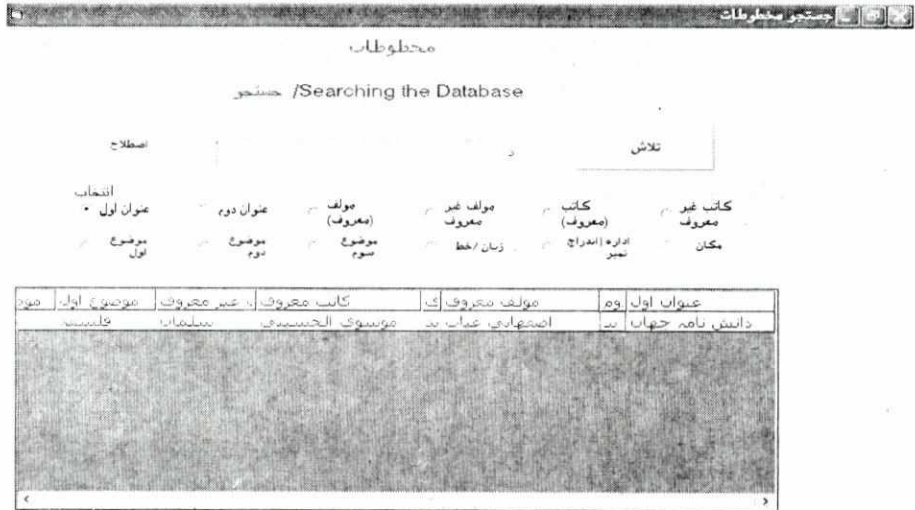 جستجو مخطوطات
مخطوطات
جستجو /Searching the Database
تلاش د اصطلاح
انتخاب
عنوان اول عنوان دوم مولف (معروف) مولف غیر معروف کاتب (معروف) کاتب غیر معروف
موضوع اول موضوع دوم موضوع سوم زبان /خط ادارہ اندراج نمبر مکان
عنوان اول وم مولف معروف ک کاتب معروف غیر معروف موضوع اول موض
دانش نامہ جهان اصفهانی غیاث موسوی الحسینی سلمان فلسفہ